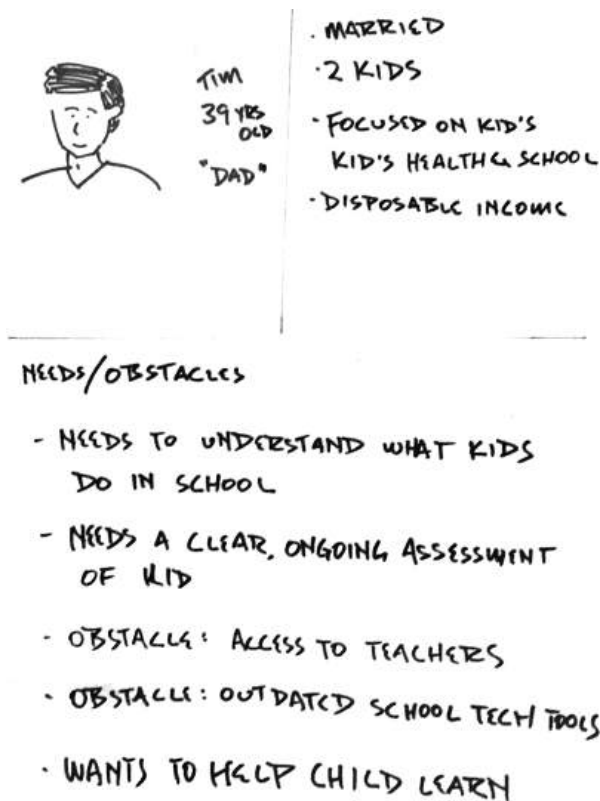 Tim
39 YRS
OLD
"DAD"
· MARRIED
· 2 KIDS
· FOCUSED ON KID'S
KID'S HEALTH & SCHOOL
· DISPOSABLE INCOME
NEEDS/OBSTACLES
- NEEDS TO UNDERSTAND WHAT KIDS
DO IN SCHOOL
- NEEDS A CLEAR, ONGOING ASSESSMENT
OF KID
- OBSTACLE: ACCESS TO TEACHERS
- OBSTACLE: OUTDATED SCHOOL TECH TOOLS
· WANTS TO HELP CHILD LEARN